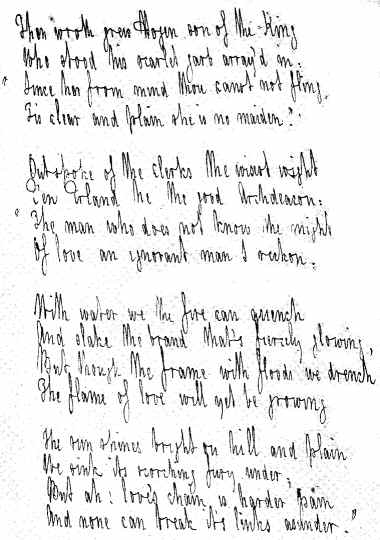 Then wroth grew Mogen son of the King
Who stood his scarlet garb array'd in:
"Since her from mind thou canst not fling,
Tis clear and plain she is no maiden."

Outspoke of the clerks the wisest wight
Erland he the good Archdeacon:
"The man who does not know the might
Of love an ignorant man I reckon.

With water we the fire can quench
And slake the brand that's fiercely glowing,
But though the frame with floods we drench
The flame of love will yet be growing

The sun shines bright on hill and plain
We sink its scorching fury under,
But ah! love's chain is harder pain
And none can break its links asunder."